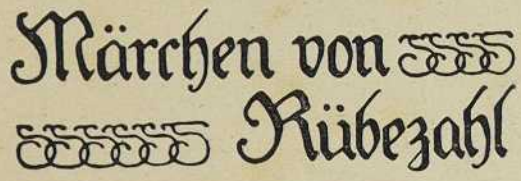 Märchen von
Rübezahl